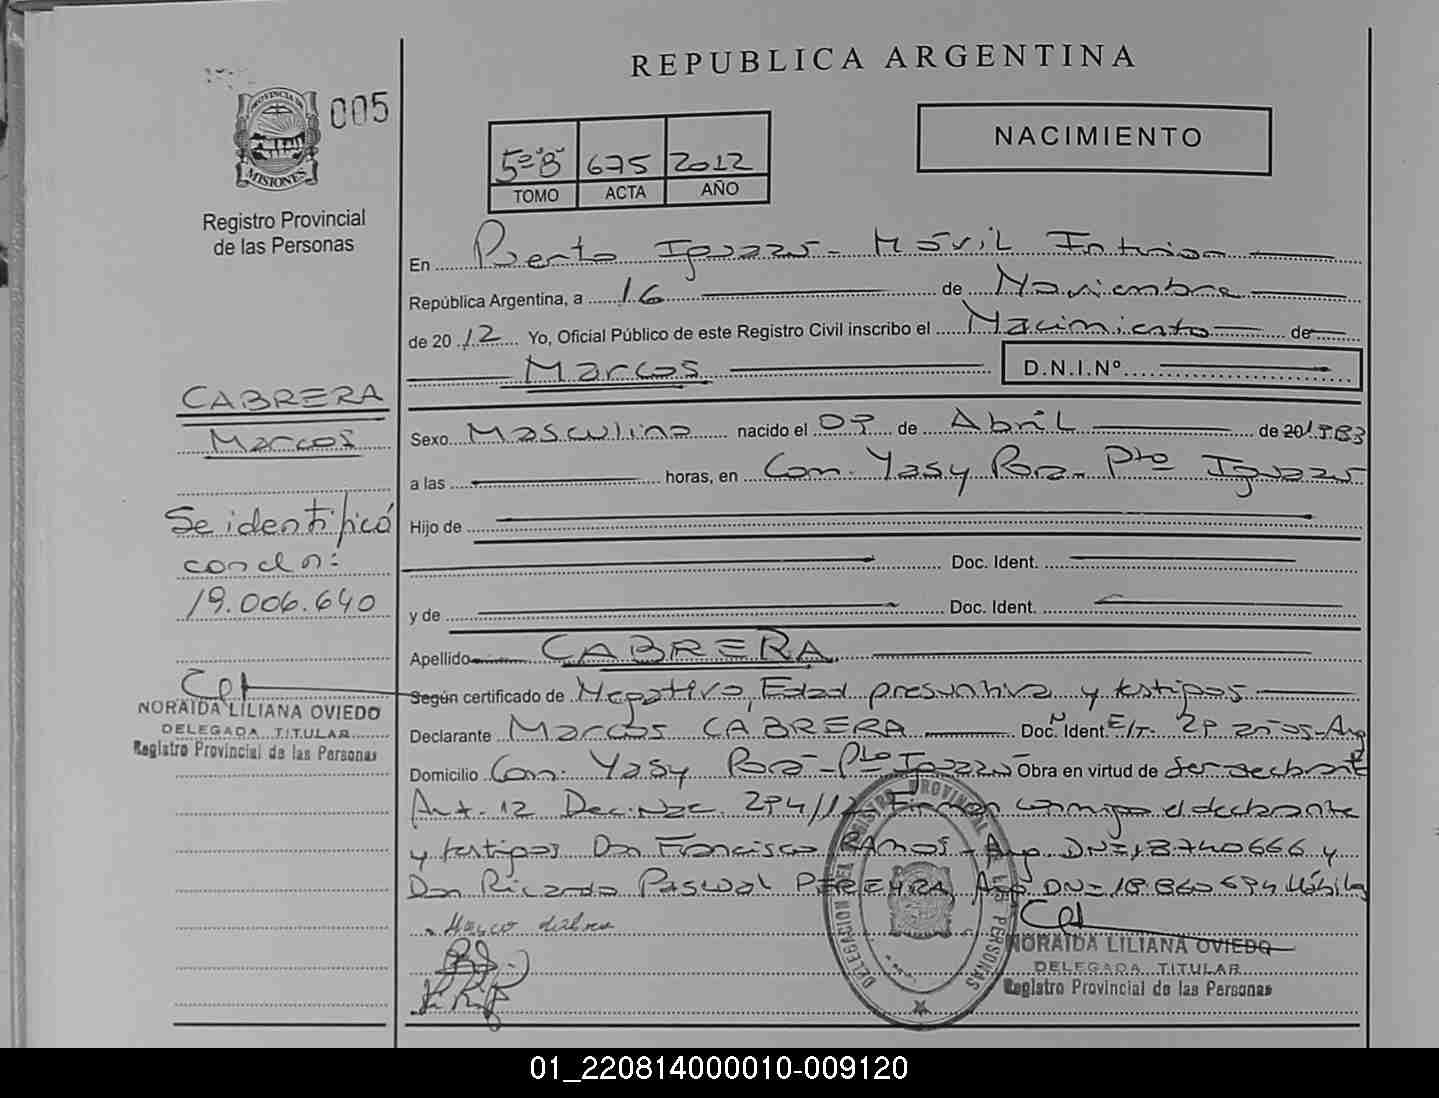 REPUBLICA ARGENTINA
PROVINCIA DE
MISIONES
005
Registro Provincial
de las Personas
5º "B" 675 2012
TOMO ACTA AÑO
NACIMIENTO
En Puerto Iguazú - Móvil Interior
República Argentina, a 16 de Noviembre
de 2012 Yo, Oficial Público de este Registro Civil inscribo el Nacimiento de
Marcos D.N.I.Nº
CABRERA
Marcos
Se identificó
con d n:
19.006.640
NORAIDA LILIANA OVIEDO
DELEGADA TITULAR
Registro Provincial de las Personas
Sexo Masculino nacido el 09 de Abril de 201 1983
a las horas, en Com. Yasy Porá - Pto Iguazú
Hijo de
Doc. Ident.
y de Doc. Ident.
Apellido CABRERA
Según certificado de Negativo, Edad presuntiva y testigos
Declarante Marcos CABRERA Doc. Ident. E/T. 29 años - Arg
Domicilio Com. Yasy Porá - Pto Iguazú Obra en virtud de Ser declarante
Art. 12 294/12 Firman conmigo el declarante
y testigos Don Francisco RAMOS - Arg. DN= 18740666 y
Don Ricardo Pascual PEREYRA Arg. DN= 18.860.694 Hábiles
NORAIDA LILIANA OVIEDO
DELEGADA TITULAR
Registro Provincial de las Personas
DELEGACION DEL REGISTRO PROVINCIAL DE LAS PERSONAS
01_220814000010-009120